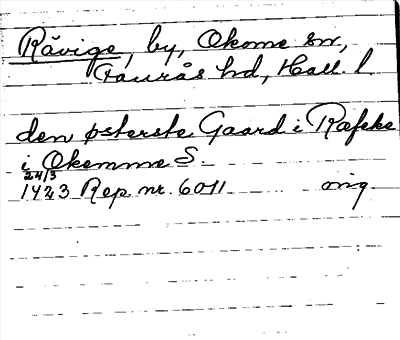 Råvige, by, Okome sn,
Faurås hd, Hall. l.
den østerste Gaard i Rafeke
i Okemme S.
24/3
1423 Rep nr. 6011 orig